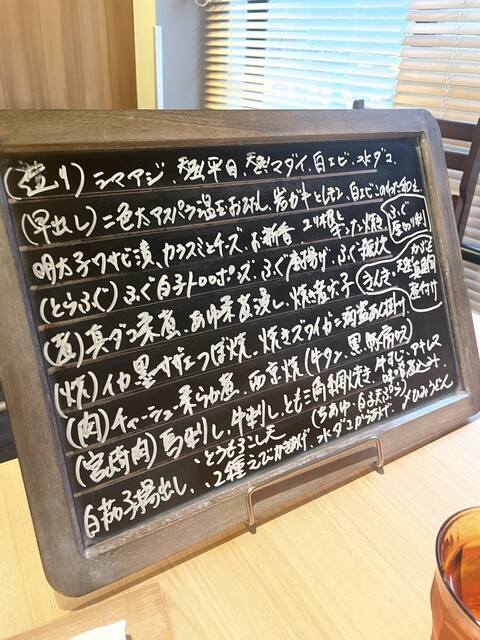 (造り) シマアジ、天然平目、天然マダイ、白エビ、水ダコ、
(早出し) 二色太アスパラ温玉おひたし、岩ガキとレモン、白エビこのわた和え、
明太子ワサビ漬、カラスミとチーズ、お新香、ユリ根とギンナン焼、
(とらふぐ) ふぐ白子トロロポンズ、ふぐ唐揚げ、ふぐ
ふぐ
(煮) 真ダコ柔煮、あゆ柔煮浸し、焼き
うんき、
かぶと
天然真鯛
煮付け
(焼) イカ墨サザエつぼ焼、焼きズワイガニ あん掛け、
(肉) チャーシュー柔らか煮、西京焼 (牛タン、黒
(宮崎肉) 馬刺し、牛刺し、とも三角網焼き、牛すじ、アキレス
味噌煮込み
白茄子揚出し、
、とうもろこし天
、2種えびかきあげ
(ちあゆ・白子天ぷら)
水ダコからあげ
〆ひみうどん